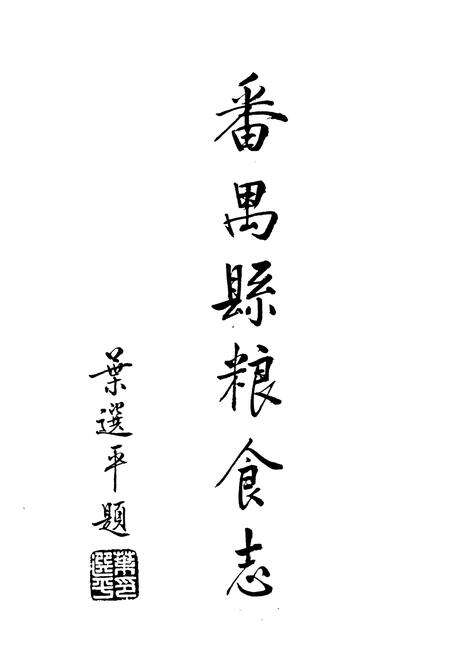 番禺縣粮食志
葉選平題
葉選平印